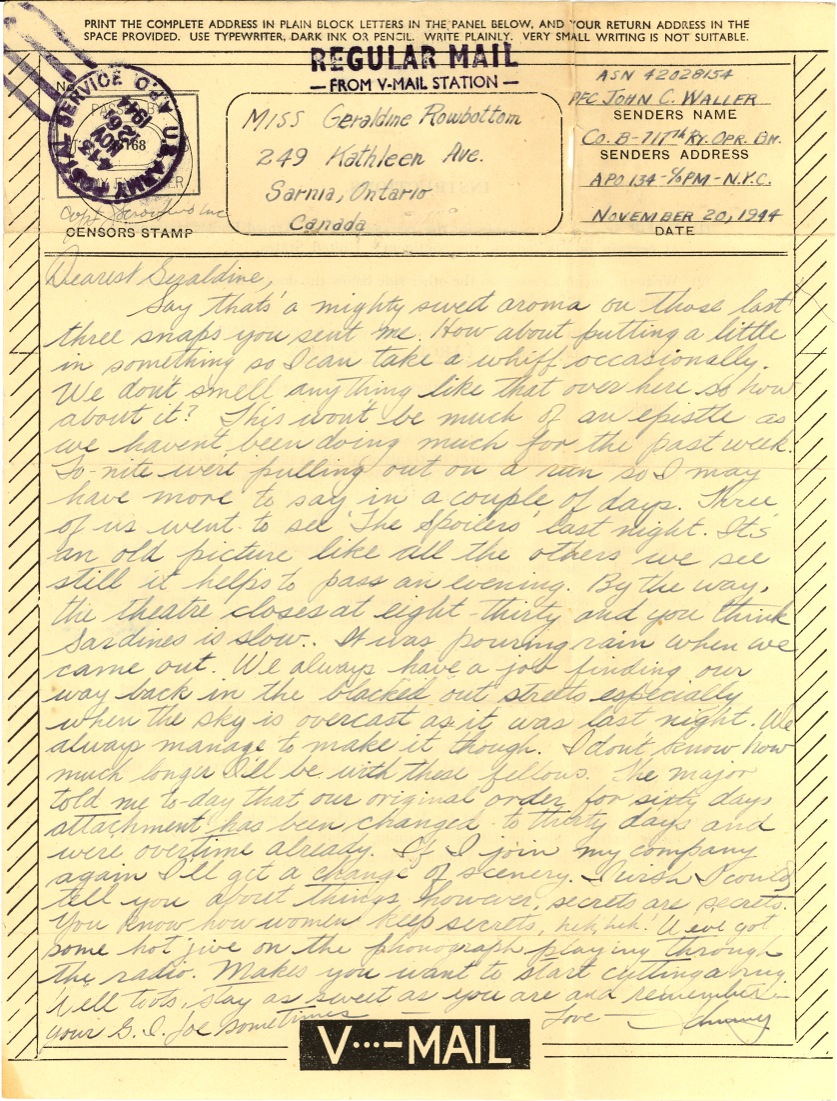 PRINT THE COMPLETE ADDRESS IN PLAIN BLOCK LETTERS IN THE PANEL BELOW, AND YOUR RETURN ADDRESS IN THE
SPACE PROVIDED. USE TYPEWRITER, DARK INK OR PENCIL. WRITE PLAINLY. VERY SMALL WRITING IS NOT SUITABLE.
REGULAR MAIL
— FROM V-MAIL STATION —
No.
PASSED B
168
ARMY EXAMINER
U.S. ARMY POSTAL SERVICE
413
NOV
26
1944
CENSORS STAMP
Miss Geraldine Rowbottom
249 Kathleen Ave.
Sarnia, Ontario
Canada
ASN 42028154
PFC JOHN C. WALLER
SENDERS NAME
CO. B-717th RY. OPR. BN.
SENDERS ADDRESS
APO 134-%PM-N.Y.C.
NOVEMBER 20, 1944
DATE
Dearest Geraldine,
Say that's a mighty sweet aroma on those last
three snaps you sent me. How about putting a little
in something so I can take a whiff occasionally.
We dont smell anything like that over here so how
about it? This wont be much of an epistle as
we havent been doing much for the past week.
To-nite were pulling out on a run so I may
have more to say in a couple of days. Three
of us went to see 'The Spoilers' last night. It's
an old picture like all the others we see
still it helps to pass an evening. By the way,
the theatre closes at eight-thirty and you think
Sardines is slow. It was pouring rain when we
came out. We always have a job finding our
way back in the blacked out streets especially
when the sky is overcast as it was last night. We
always manage to make it though. I don't know how
much longer I'll be with these fellows. The major
told me to-day that our original order for sixty days
attachment has been changed to thirty days and
were overtime already. If I join my company
again I'll get a change of scenery. I wish I could
tell you about things, however, secrets are secrets.
You know how women keep secrets, heh, heh! We've got
some hot jive on the phonograph playing through
the radio. Makes you want to start cutting a rug.
Well toots, stay as sweet as you are and remember
your G.I. Joe sometimes — Love —
V···-MAIL